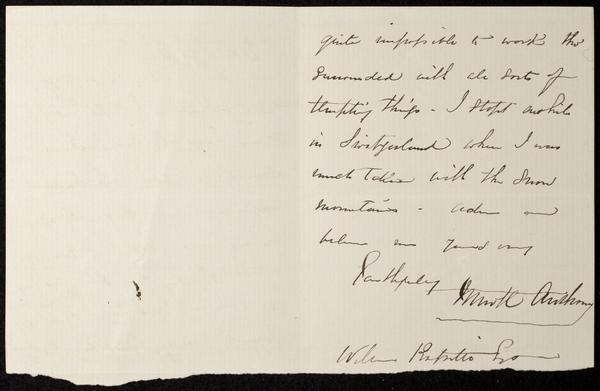 quite impossible to work tho
surrounded with all sorts of
tempting things - I stopt awhile
in Switzerland when I was
much taken with the snow
mountains - adieu and
believe me yours very
Faithfully Mark Anthony
Esq